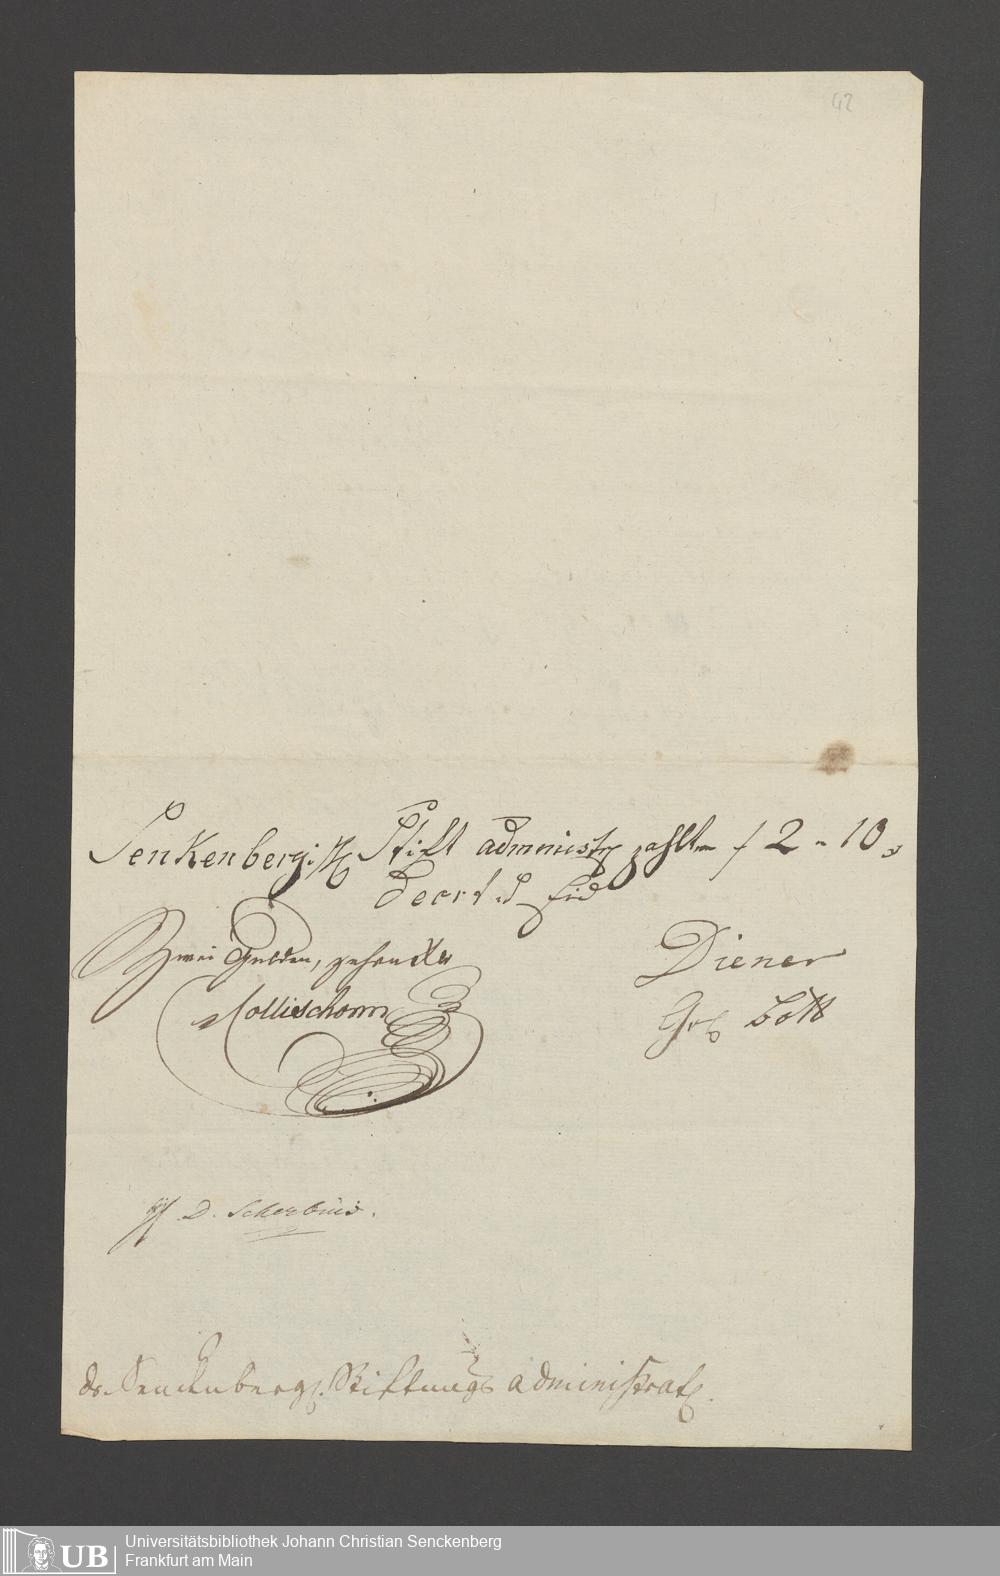 42
Senkenbergis. Stift administr zahlten f 2 - 10
Decret
Zwei Gulden, zehen xr
Diener
Mollieschonn
Gr Bott
D. Scherbius.
dr. Senckenberg. Stiftungs administrat.
Universitätsbibliothek Johann Christian Senckenberg
Frankfurt am Main
UB